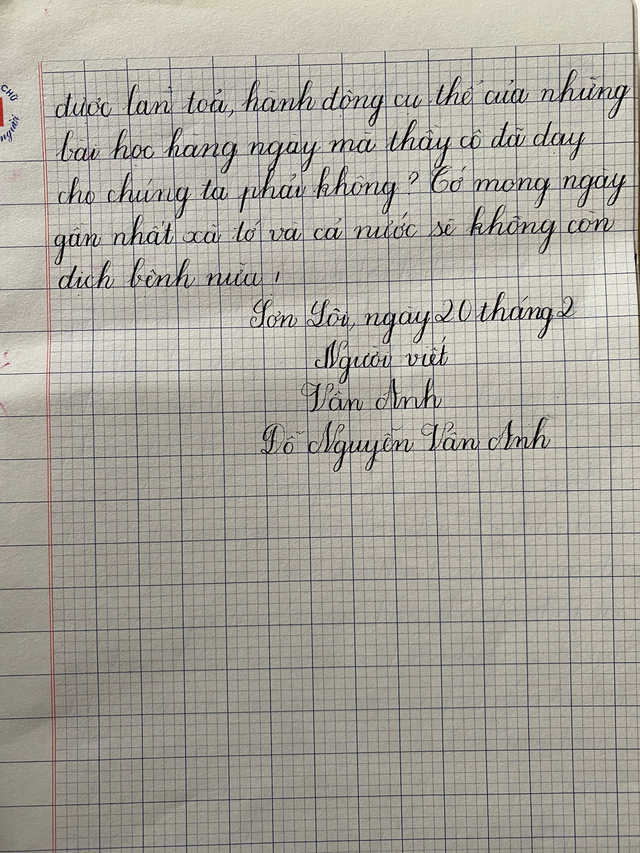 CHỮ
người
được lan toả, hành động cụ thể của những
bài học hàng ngày mà thầy cô đã dạy
cho chúng ta phải không? Tớ mong ngày
gần nhất xã tớ và cả nước sẽ không còn
dịch bệnh nữa!
Sơn Lôi, ngày 20 tháng 2
Người viết
Vân Anh
Đỗ Nguyễn Vân Anh